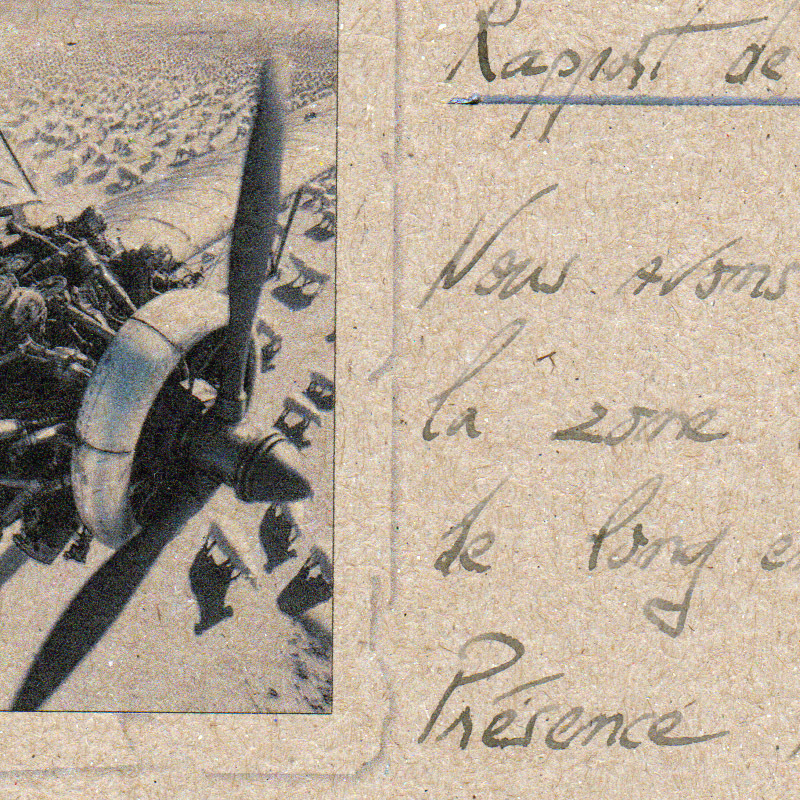 Rapport de
Nous avons
la zone
de long en
Présence